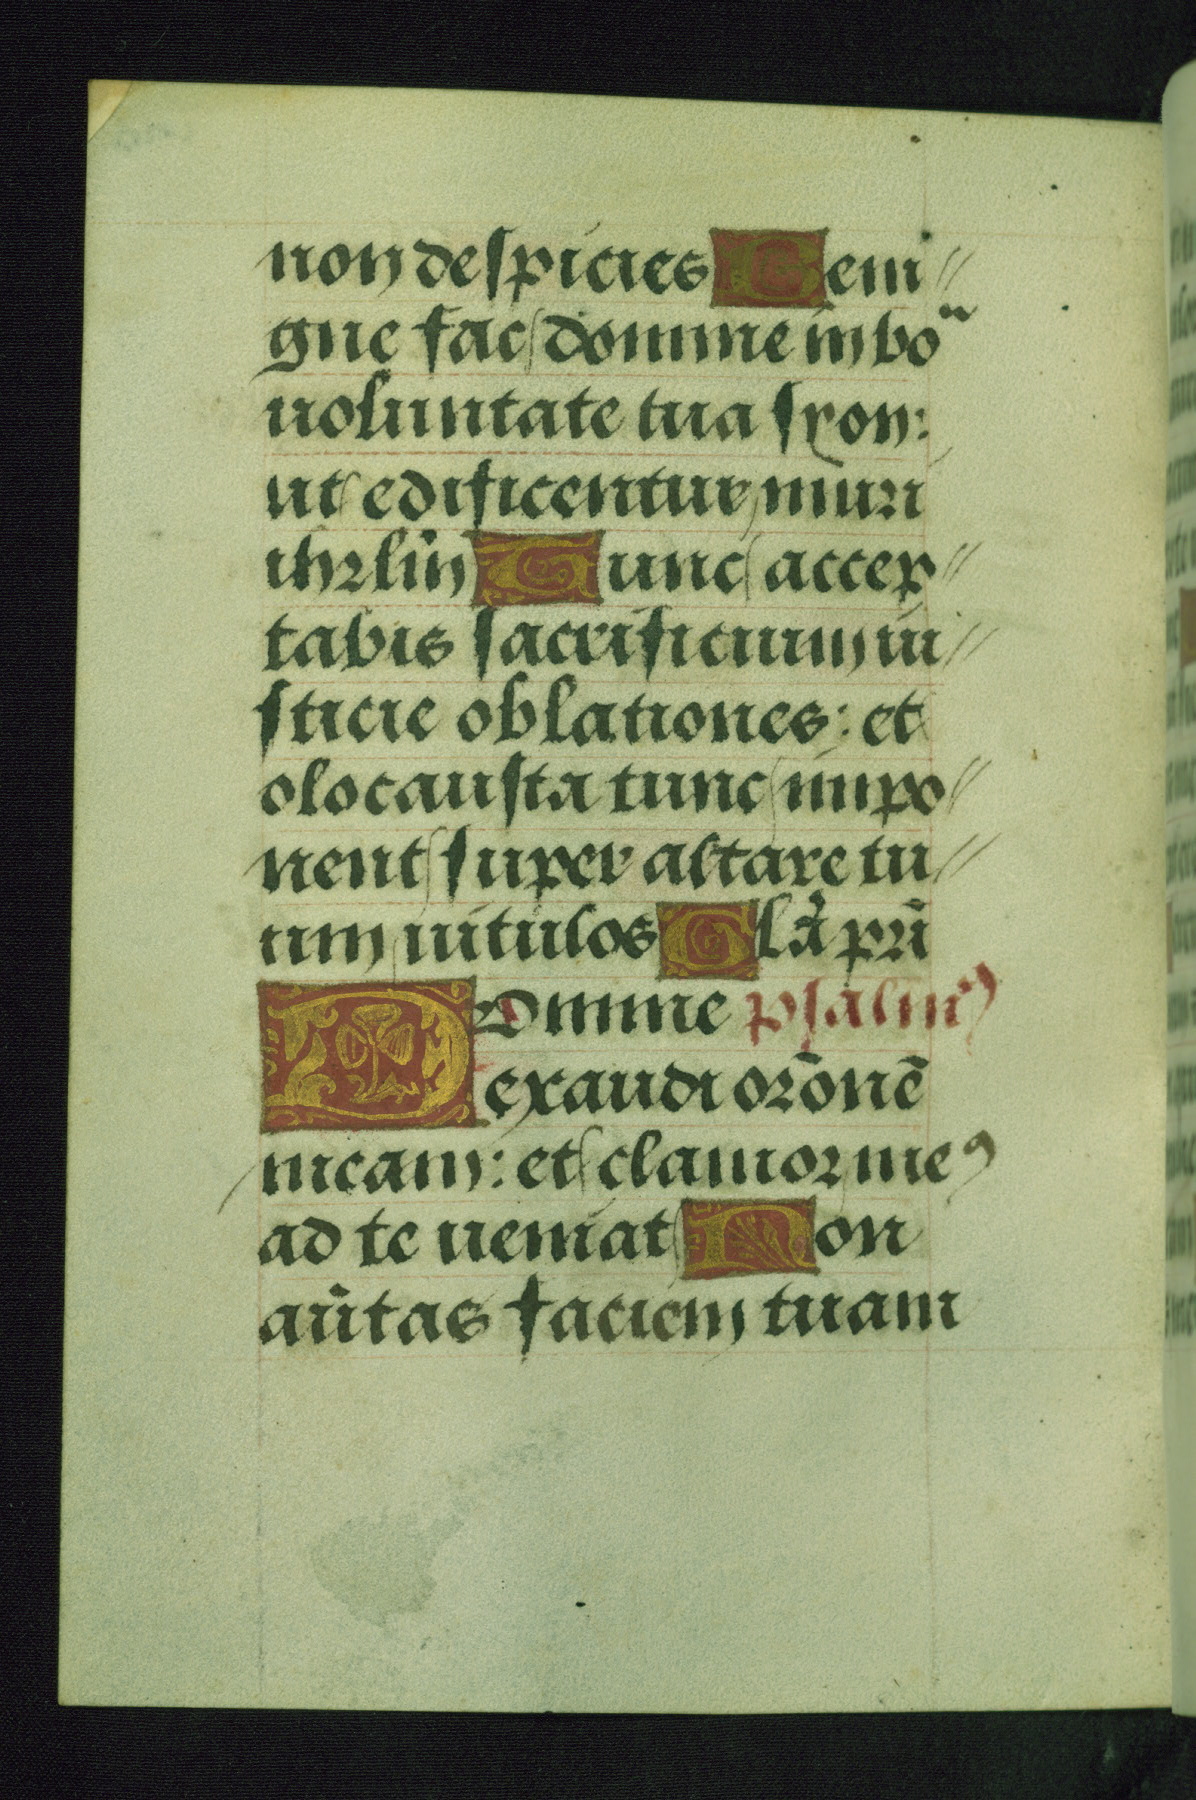 non despicies Beni//
gne fac domine in bo͂
uoluntate tua syon:
ut edificentur muri
ihrlm̄ Tunc accep//
tabis sacrificium iu//
sticie oblationes: et
olocausta tunc impo//
nent super altare tu//
um uitulos Glā pr̄i
Domine psalmꝰ
exaudi orōnē
meam: et clamor meꝰ
ad te ueniat Non
aūtas faciem tuam